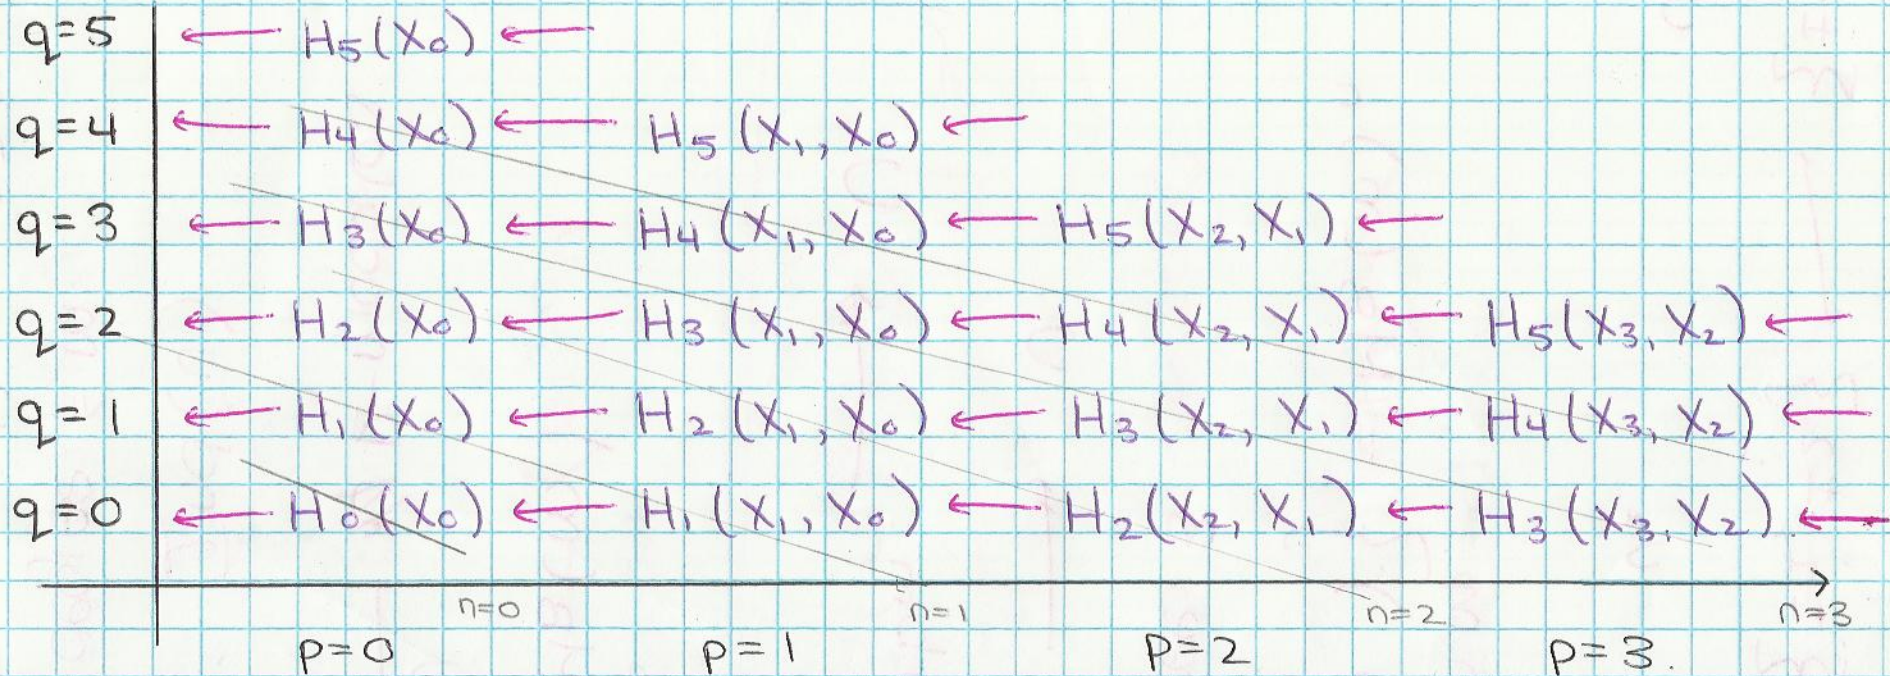 q=5 ← H₅(X₀) ←
q=4 ← H₄(X₀) ← H₅(X₁, X₀) ←
q=3 ← H₃(X₀) ← H₄(X₁, X₀) ← H₅(X₂, X₁) ←
q=2 ← H₂(X₀) ← H₃(X₁, X₀) ← H₄(X₂, X₁) ← H₅(X₃, X₂) ←
q=1 ← H₁(X₀) ← H₂(X₁, X₀) ← H₃(X₂, X₁) ← H₄(X₃, X₂) ←
q=0 ← H₀(X₀) ← H₁(X₁, X₀) ← H₂(X₂, X₁) ← H₃(X₃, X₂) ←
n=0 n=1 n=2 n=3
p=0 p=1 p=2 p=3.